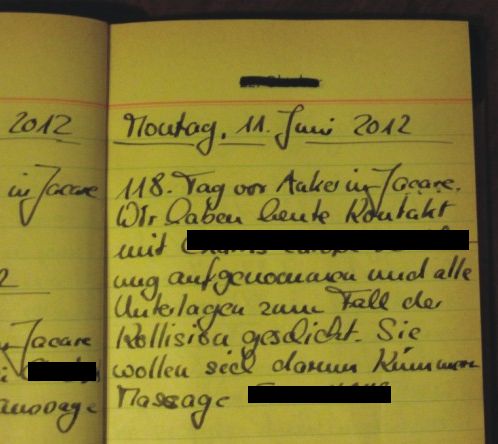 2012
Montag, 11. Juni 2012
in Jacare
118. Tag vor Anker in Jacare.
Wir haben heute Kontakt
mit
ung aufgenommen und alle
Unterlagen zum Fall der
Jacare
Kollision gesdicht. Sie
wollen sich darum kümmern
Massage